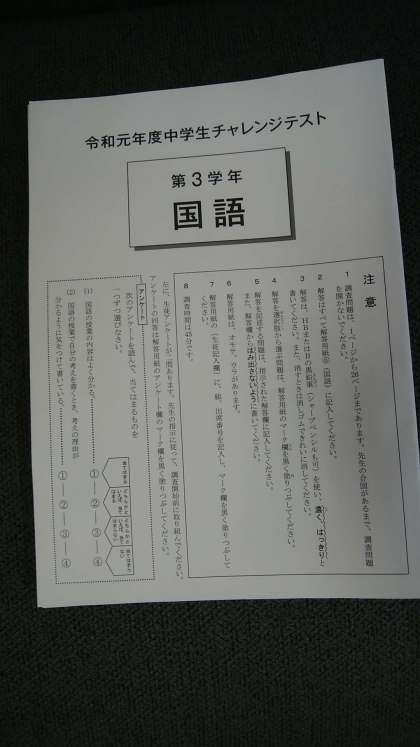 令和元年度中学生チャレンジテスト
第3学年
国語
注意
1 調査問題は、1ページから26ページまであります。先生の合図があるまで、調査問題
を開かないでください。
2 解答はすべて解答用紙㊢（国語）に記入してください。
3 解答は、HBまたはBの黒鉛筆（シャープペンシルも可）を使い、濃く、はっきりと
書いてください。また、消すときは消しゴムできれいに消してください。
4 解答を選択肢から選ぶ問題は、解答用紙のマーク欄を黒く塗りつぶしてください。
5 解答を記述する問題は、指示された解答欄に記入してください。
また、解答欄からはみ出さないように書いてください。
6 解答用紙は、オモテ、ウラがあります。
7 解答用紙の〔生徒記入欄〕に、組、出席番号を記入し、マーク欄を黒く塗りつぶして
ください。
8 調査時間は45分です。
左に、生徒アンケートが二問あります。先生の指示に従って、調査開始前に取り組んでください。
アンケートの回答は解答用紙のアンケート欄のマーク欄を黒く塗りつぶしてください。
アンケート
次のアンケートを読んで、当てはまるものを
一つずつ選びなさい。
当てはまる
どちらかといえば、当てはまる
どちらかといえば、当てはまらない
当てはまらない
(1) 国語の授業の内容はよく分かる。 ① ② ③ ④
(2) 国語の授業で自分の考えを書くとき、考えの理由が
分かるように気をつけて書いている。 ① ② ③ ④